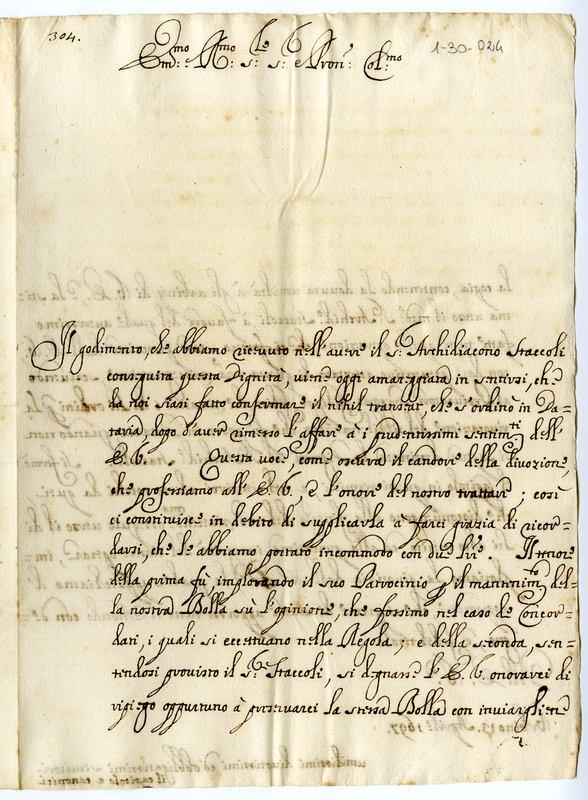 304.
1-30-024
Em:mo R:mo S: S: e Pron: Col:mo
Il godimento, che abbiamo ricevuto nell'avere il S: Archidiacono Staccoli
conseguita questa Dignità, viene oggi amareggiata in sentirsi, che
da noi siasi fatto confermare il nihil transeat, che s'ordinò in Da=
taria, dopo d'aver rimesso l'affare à i prudentissimi sentim:ti dell'
E. V. Questa voce, come oscura il candore della divozione,
che professiamo all' E. V., e l'onore del nostro trattare; così
ci constituisce in debito di supplicarla à farci grazia di ricor=
darsi, che le abbiamo portato incommodo con due l're. Il tenore
della prima fù implorando il suo Patrocinio p il mantenim:to del=
la nostra Bolla sù l'opinione, che fossimo nel caso de Concor=
dati, i quali si eccettuano nella Regola; e della seconda, sen=
tendosi provisto il S:r Staccoli, si degnasse l'E. V. onorarci di
ripiego opportuno à preservarci la stessa Bolla con inviargliene